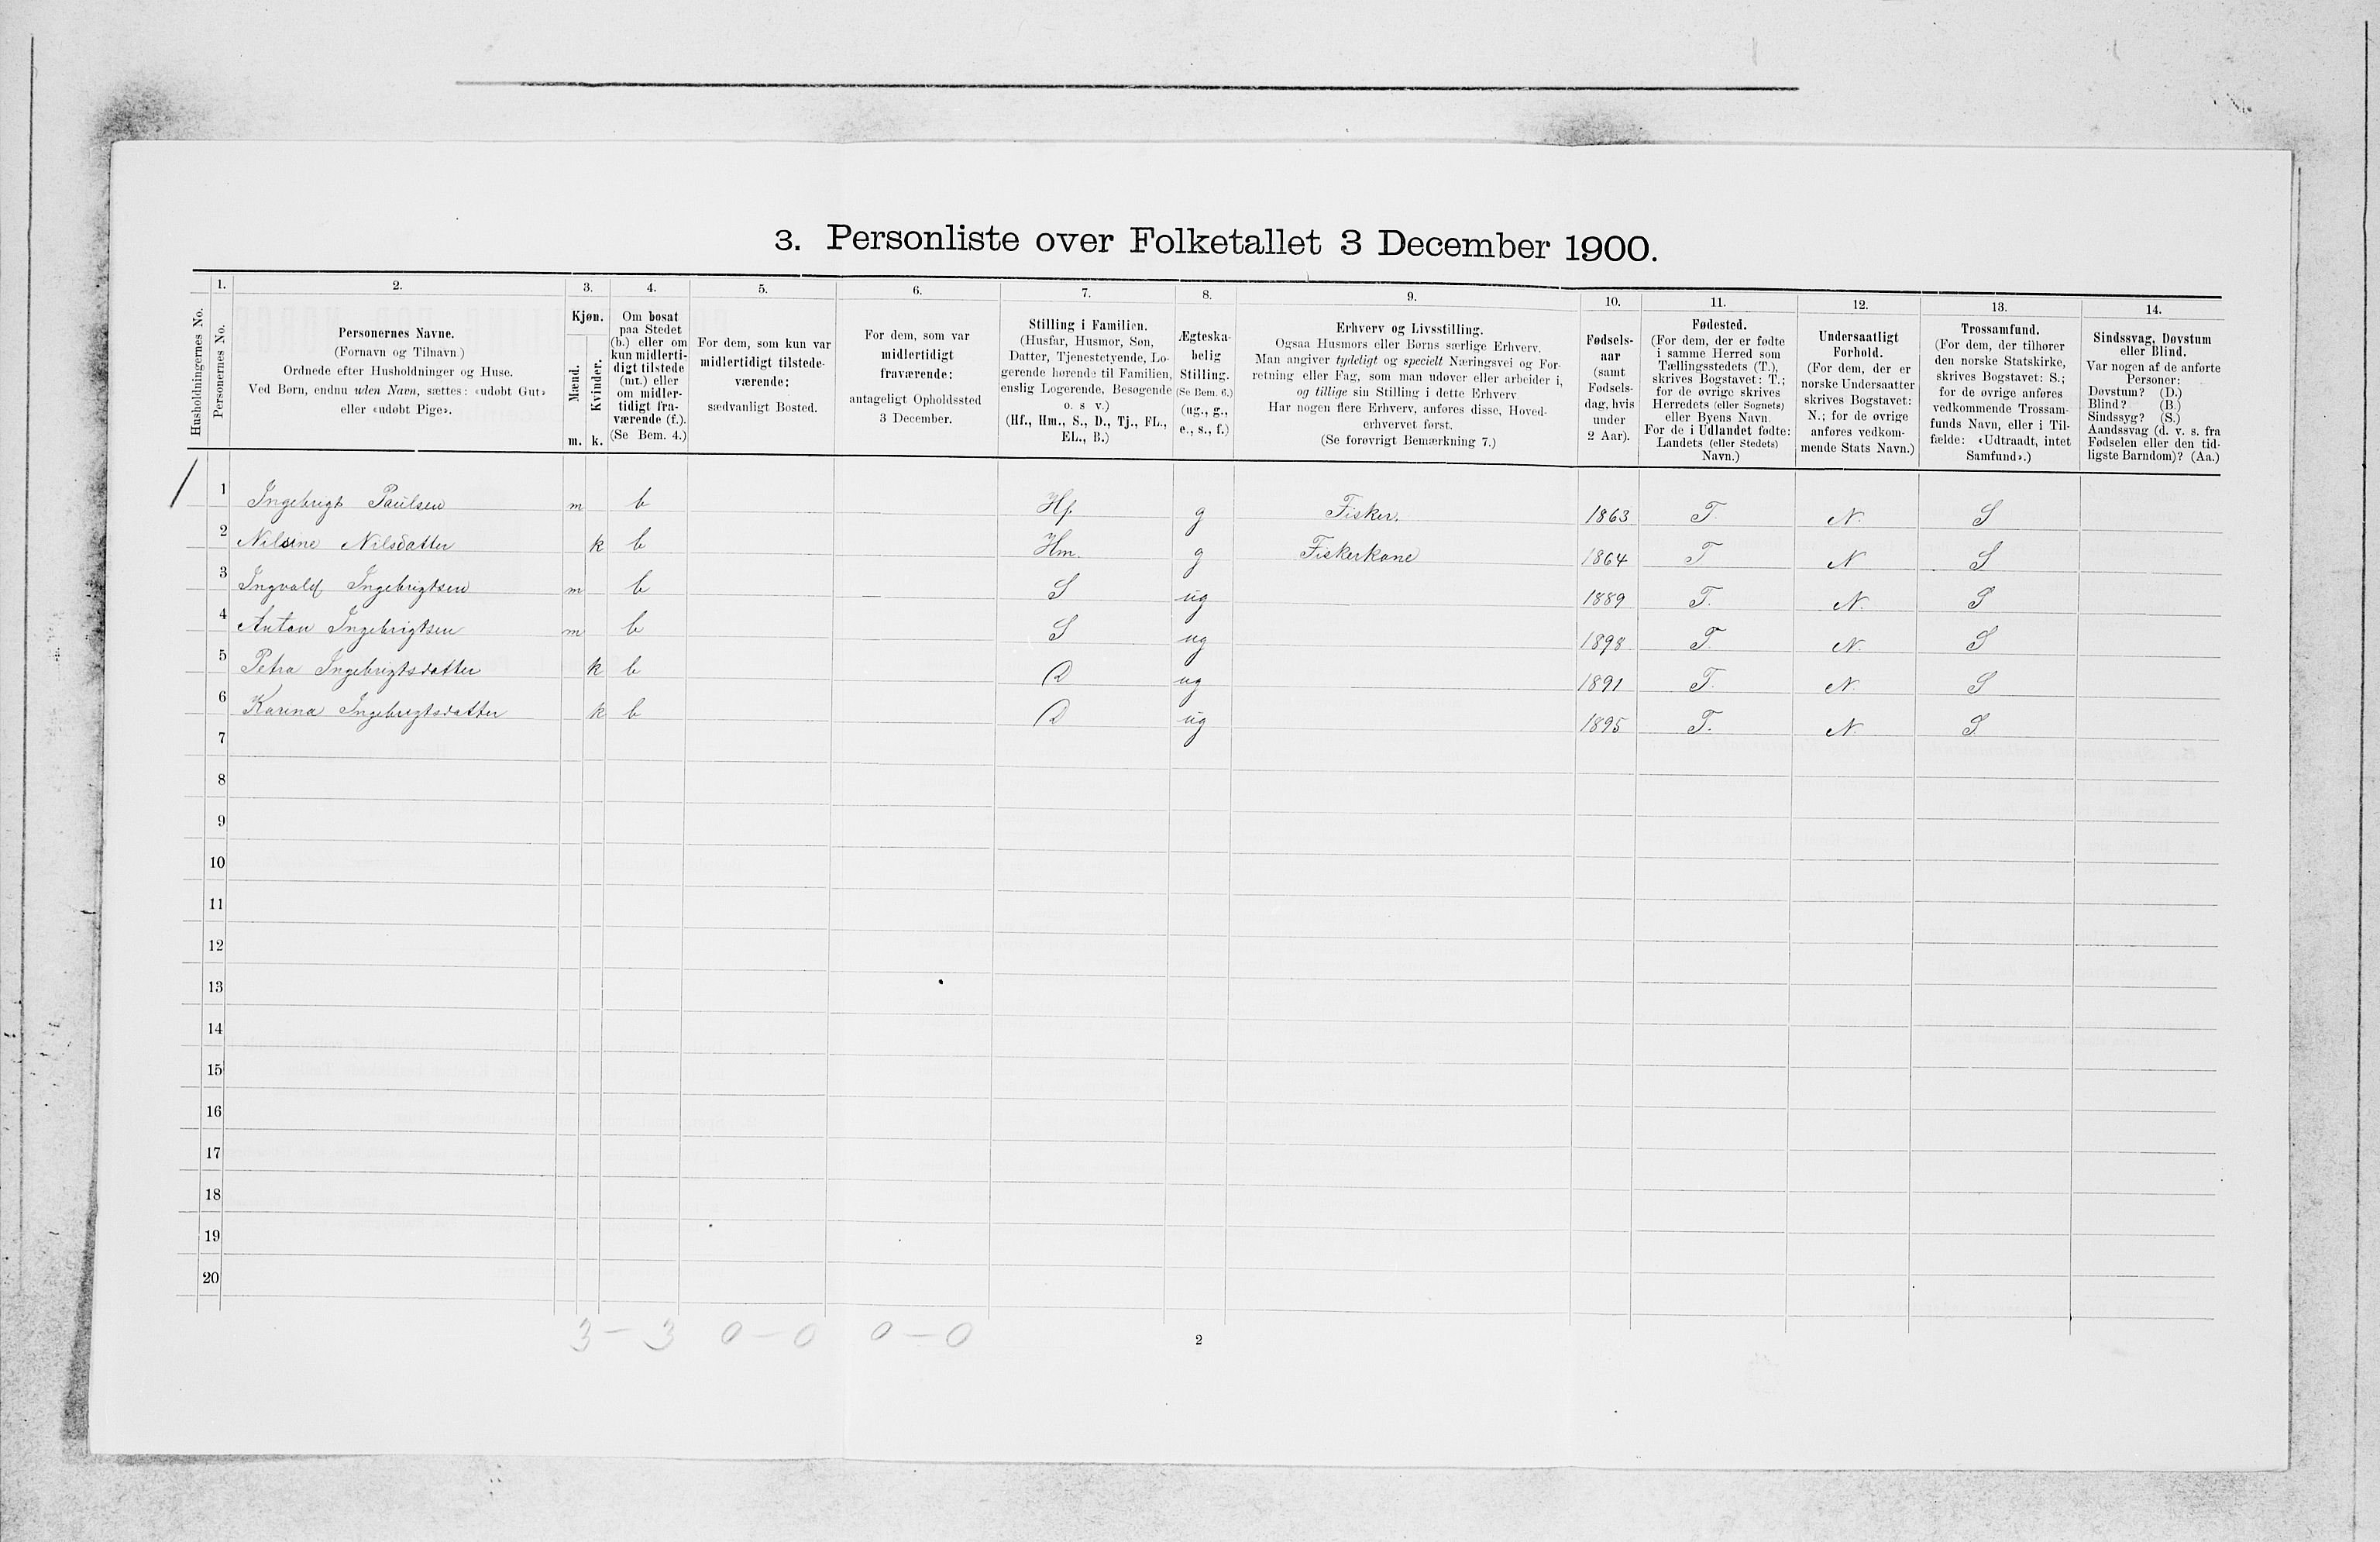 3. Personliste over Folketallet 3 December 1900.
Husholdningernes No.
1.
Personernes No.
2.
Personernes Navne.
(Fornavn og Tilnavn.)
Ordnede efter Husholdninger og Huse.
Ved Børn, endnu uden Navn, sættes: «udøbt Gut»
eller «udøbt Pige».
3.
Kjøn.
Mænd.
Kvinder.
m. k.
4.
Om bosat
paa Stedet
(b.) eller om
kun midlerti-
digt tilstede
(mt.) eller
om midler-
tidigt fra-
værende (f.).
(Se Bem. 4.)
5.
For dem, som kun var
midlertidigt tilstede-
værende:
sædvanligt Bosted.
6.
For dem, som var
midlertidigt
fraværende:
antageligt Opholdssted
3 December.
7.
Stilling i Familien.
(Husfar, Husmor, Søn,
Datter, Tjenestetyende, Lo-
gerende hørende til Familien,
enslig Logerende, Besøgende
o. s v.)
(Hf., Hm., S., D., Tj., FL.,
EL., B.)
8.
Ægteska-
belig
Stilling.
(Se Bem. 6.)
(ug., g.,
e., s., f.)
9.
Erhverv og Livsstilling.
Ogsaa Husmors eller Børns særlige Erhverv.
Man angiver tydeligt og specielt Næringsvei og For-
retning eller Fag, som man udøver eller arbeider i,
og tillige sin Stilling i dette Erhverv
Har nogen flere Erhverv, anføres disse, Hoved-
erhvervet først.
(Se forøvrigt Bemærkning 7.)
10.
Fødsels-
aar
(samt
Fødsels-
dag, hvis
under
2 Aar).
11.
Fødested.
(For dem, der er fødte
i samme Herred som
Tællingsstedets (T.),
skrives Bogstavet: T.;
for de øvrige skrives
Herredets (eller Sognets)
eller Byens Navn.
For de i Udlandet fødte:
Landets (eller Stedets)
Navn.)
12.
Undersaatligt
Forhold.
(For dem, der er
norske Undersaatter
skrives Bogstavet:
N.; for de øvrige
anføres vedkom-
mende Stats Navn.)
13.
Trossamfund.
(For dem, der tilhører
den norske Statskirke,
skrives Bogstavet: S.;
for de øvrige anføres
vedkommende Trossam-
funds Navn, eller i Til-
fælde: «Udtraadt, intet
Samfund».)
14.
Sindssvag, Døvstum
eller Blind.
Var nogen af de anførte
Personer:
Døvstum? (D.)
Blind? (B.)
Sindssyg? (S.)
Aandssvag (d. v. s. fra
Fødselen eller den tid-
ligste Barndom)? (Aa.)
1 Ingebrigt Paulsen m b Hf. g Fisker. 1863 T. N. S
2 Nilsine Nilsdatter k b Hm. g Fiskerkone 1864 T N S
3 Ingvald Ingebrigtsen m b — S ug 1889 T. N. S
4 Anton Ingebrigtsen m b S ug 1898 T. N. S
5 Petra Ingebrigtsdatter k b D ug 1891 T. N S
6 Karina Ingebrigtsdatter k b D ug 1895 T. N S
7
8
9
10
11
12
13
14
15
16
17
18
19
20
3 - 3 0 - 0 0 - 0
2